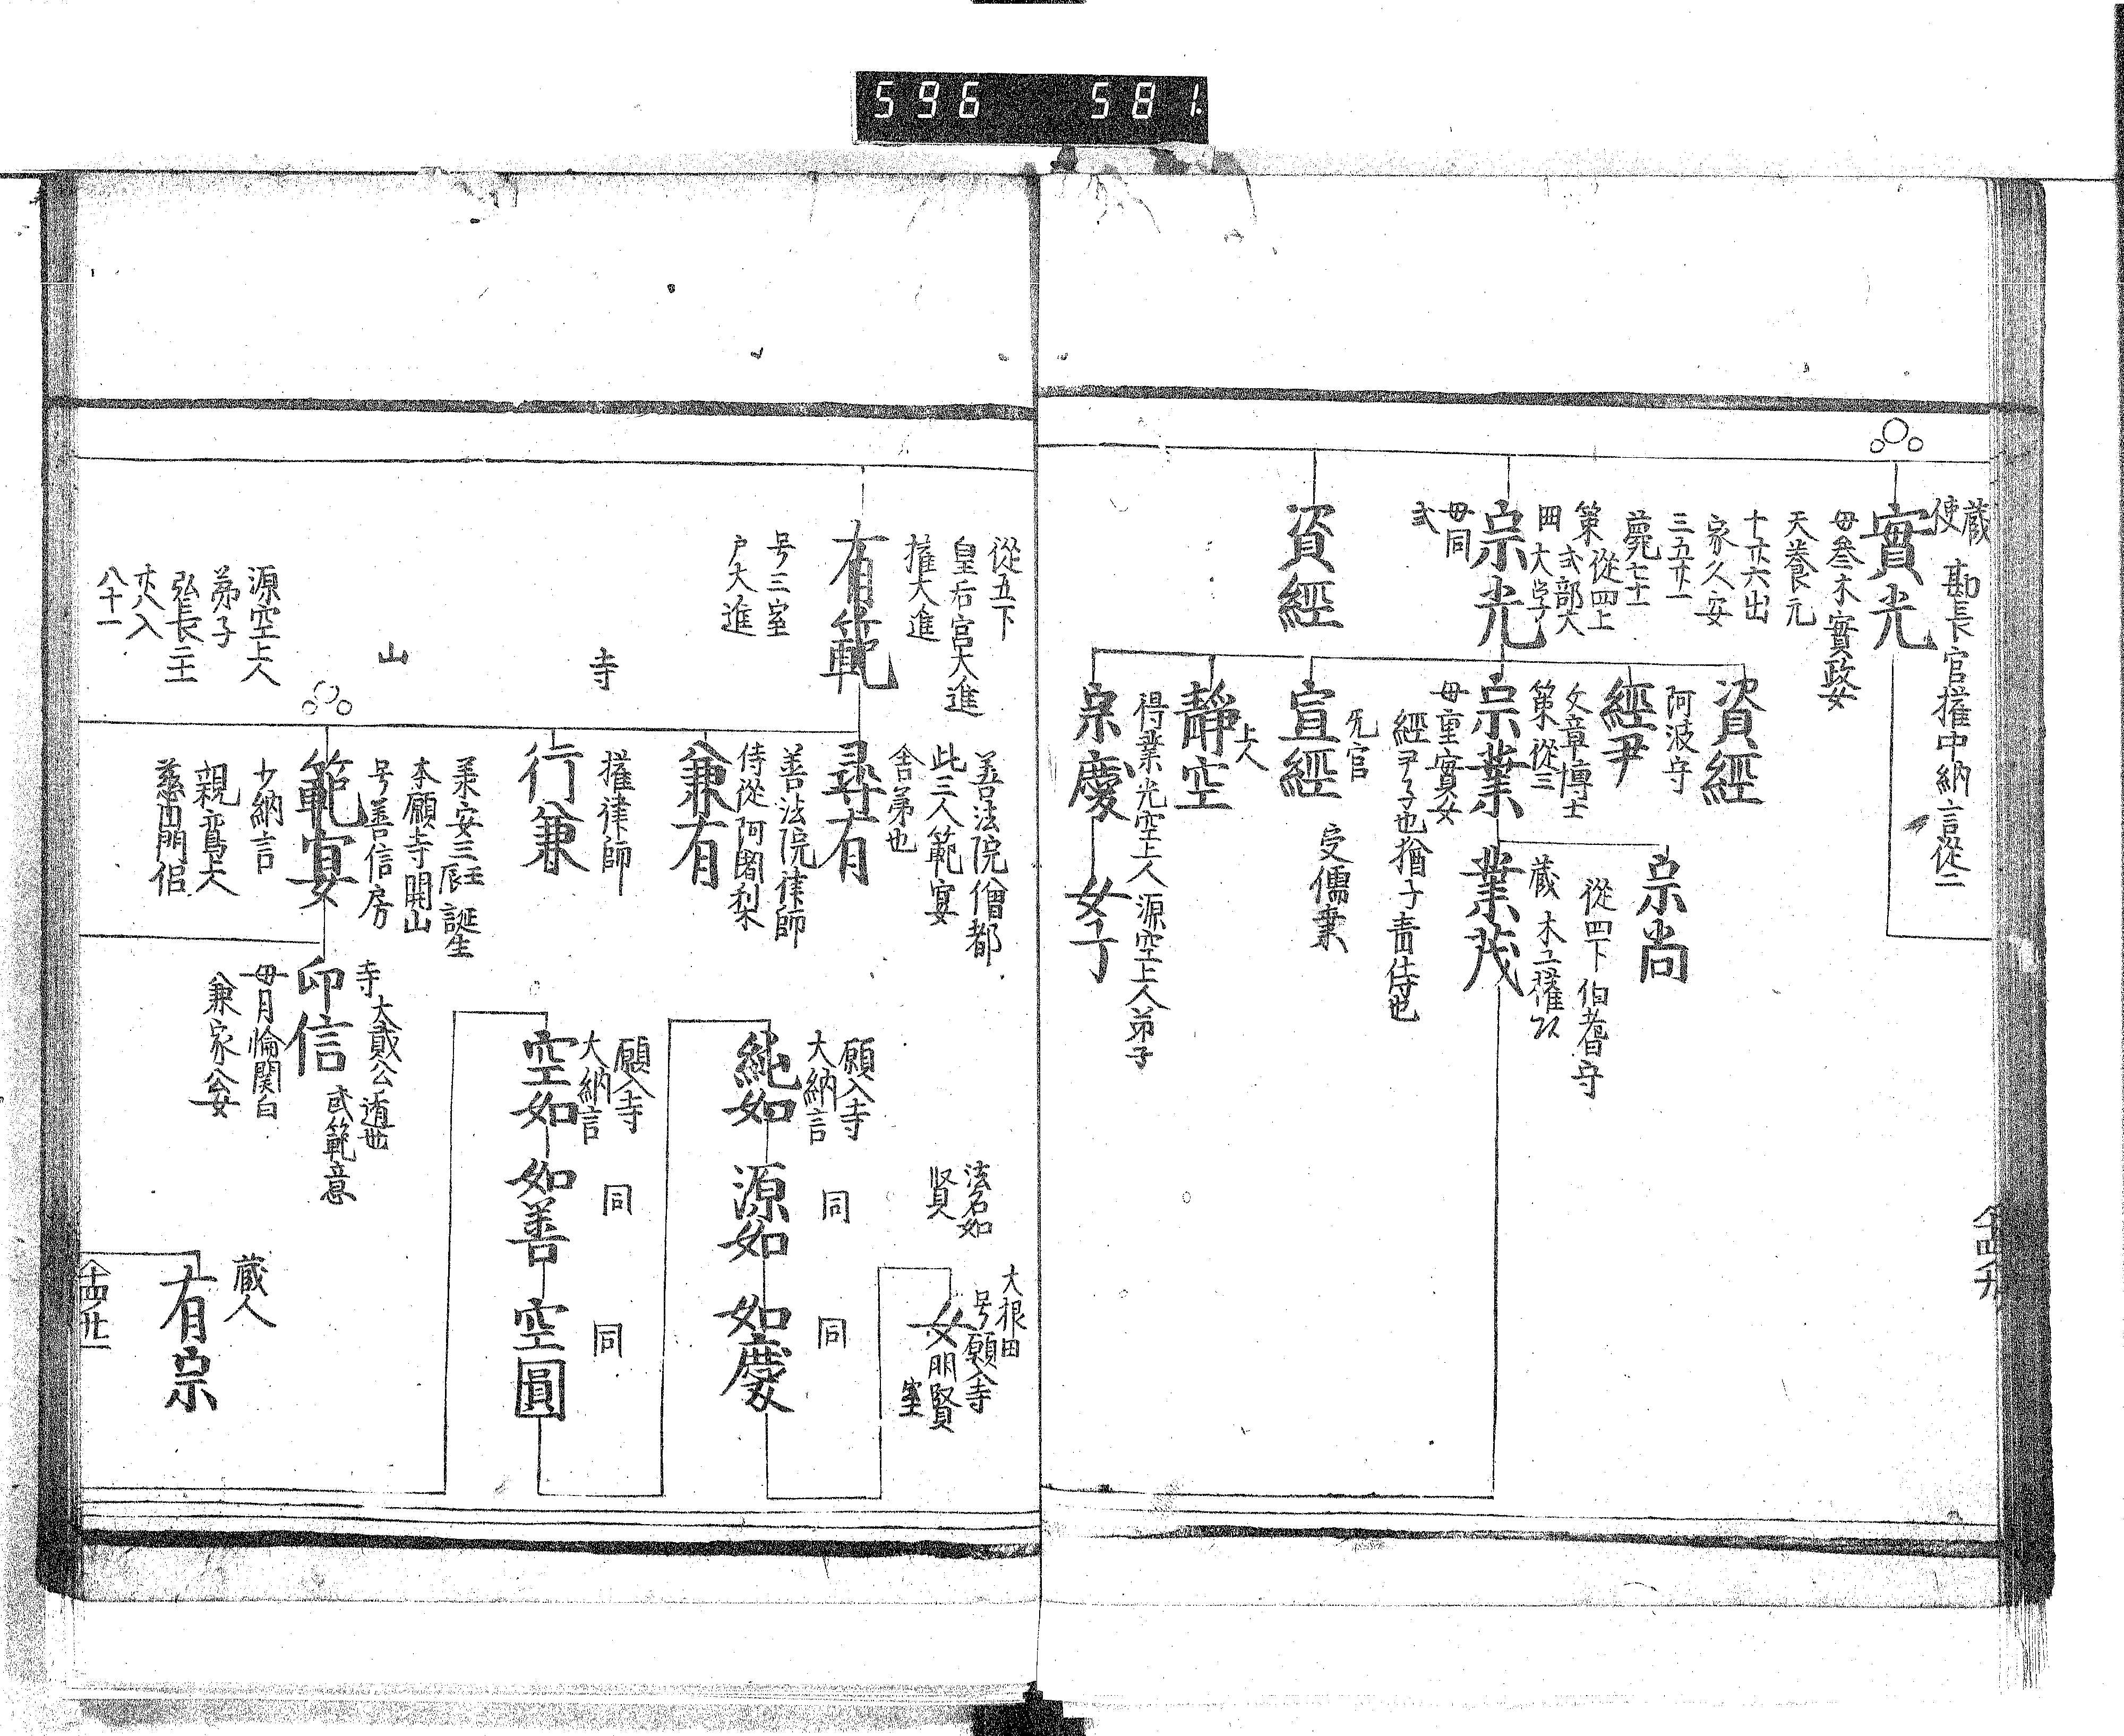 596 581
蔵
使
勘長官権中納言従二
實光
母参木實政女
天養元
十廿六出
家久安
三五廿一
薨七十一
宗光
策従四上
式部大
大学
母同
資經
資經
阿波守
經尹
文章博士
策従三
宗業
母重實女
經尹子也猶子青侍也
宗尚
従四下伯耆守
蔵木工権
業茂
无官
宣經
受儒業
上人
靜空
得業光空上人源空上人弟子
宗慶
女子
従五下
皇后宮大進
権大進
有範
号三室
戸大進
善法院僧都
此三人範宴
舎弟也
尋有
善法院律師
侍従阿闍梨
兼有
寺
権律師
行兼
山
承安三誕生
本願寺開山
号善信房
範宴
少納言
親鸞上人
慈西門侶
源空上人
弟子
弘長二壬
入
八十一
寺大貳公遁世
印信
或範意
母月輪関白
兼家公女
蔵人
有宗
大根田
号願入寺
女
明賢
室
法名如
賢
願入寺
大納言
純如
同
源如
同
如慶
願入寺
大納言
空如
同
如善
同
空圓